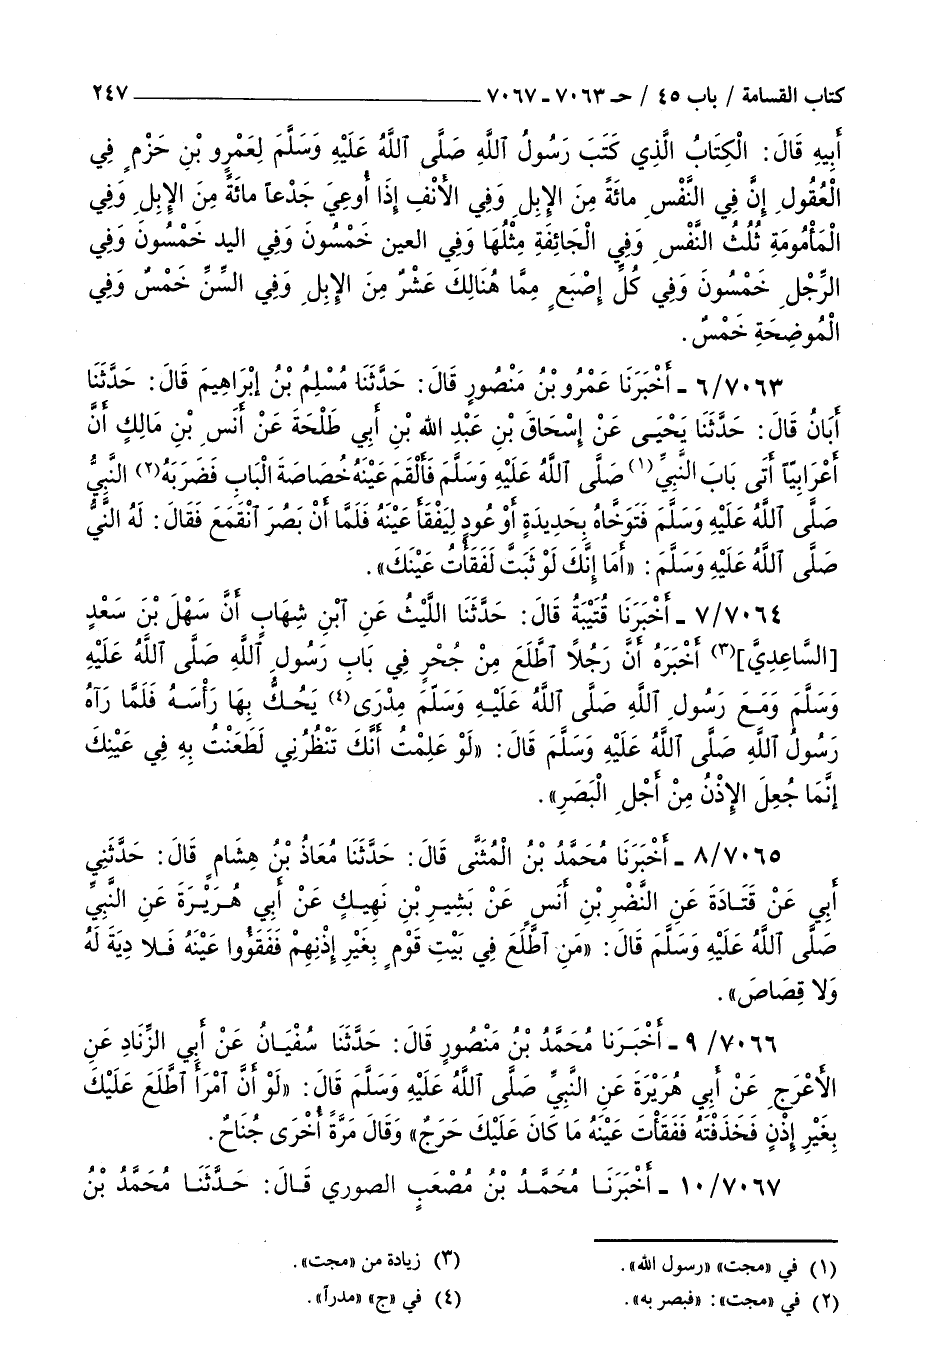 كتاب القسامة / باب ٤٥ / حـ ٧٠٦٣ - ٧٠٦٧ ٢٤٧
أَبِيهِ قَالَ: الْكِتَابُ الَّذِي كَتَبَ رَسُولُ اللَّهِ صَلَّى اللَّهُ عَلَيْهِ وَسَلَّمَ لِعَمْرِو بْنِ حَزْمٍ فِي
الْعُقُولِ إِنَّ فِي النَّفْسِ مائَةً مِنَ الإِبِلِ وَفِي الأَنْفِ إِذَا أُوعِيَ جَدْعاً مائَةً مِنَ الإِبِلِ وَفِي
الْمَأْمُومَةِ ثُلُثُ النَّفْسِ وَفِي الْجَائِفَةِ مِثْلُهَا وَفِي العين خَمْسُونَ وَفِي اليد خَمْسُونَ وَفِي
الرِّجْلِ خَمْسُونَ وَفِي كُلِّ إِصْبَعٍ مِمَّا هُنَالِكَ عَشْرٌ مِنَ الإِبِلِ وَفِي السِّنِّ خَمْسٌ وَفِي
الْمُوضِحَةِ خَمْسٌ.
٦/٧٠٦٣ - أَخْبَرَنَا عَمْرُو بْنُ مَنْصُورٍ قَالَ: حَدَّثَنَا مُسْلِمُ بْنُ إِبْرَاهِيمَ قَالَ: حَدَّثَنَا
أَبَانُ قَالَ: حَدَّثَنَا يَحْيَى عَنْ إِسْحَاقَ بْنِ عَبْدِ الله بْنِ أَبِي طَلْحَةَ عَنْ أَنَسِ بْنِ مَالِكٍ أَنَّ
أَعْرَابِيّاً أَتَى بَابَ النَّبِيِّ (١) صَلَّى اللَّهُ عَلَيْهِ وَسَلَّمَ فَأَلْقَمَ عَيْنَهُ خُصَاصَةَ الْبَابِ فَضَرَبَهُ (٢) النَّبِيُّ
صَلَّى اللَّهُ عَلَيْهِ وَسَلَّمَ فَتَوَخَّاهُ بِحَدِيدَةٍ أَوْ عُودٍ لِيَفْقَأَ عَيْنَهُ فَلَمَّا أَنْ بَصُرَ انْقَمَعَ فَقَالَ: لَهُ النَّبِيُّ
صَلَّى اللَّهُ عَلَيْهِ وَسَلَّمَ: «أَمَا إِنَّكَ لَوْ ثَبَتَّ لَفَقَأْتُ عَيْنَكَ».
٧/٧٠٦٤ - أَخْبَرَنَا قُتَيْبَةُ قَالَ: حَدَّثَنَا اللَّيْثُ عَنِ ابْنِ شِهَابٍ أَنَّ سَهْلَ بْنَ سَعْدٍ
[السَّاعِدِيَّ] (٣) أَخْبَرَهُ أَنَّ رَجُلاً اطَّلَعَ مِنْ جُحْرٍ فِي بَابِ رَسُولِ اللَّهِ صَلَّى اللَّهُ عَلَيْهِ
وَسَلَّمَ وَمَعَ رَسُولِ اللَّهِ صَلَّى اللَّهُ عَلَيْهِ وَسَلَّمَ مِدْرَى (٤) يَحُكُّ بِهَا رَأْسَهُ فَلَمَّا رَآهُ
رَسُولُ اللَّهِ صَلَّى اللَّهُ عَلَيْهِ وَسَلَّمَ قَالَ: «لَوْ عَلِمْتُ أَنَّكَ تَنْظُرُنِي لَطَعَنْتُ بِهِ فِي عَيْنِكَ
إِنَّمَا جُعِلَ الإِذْنُ مِنْ أَجْلِ الْبَصَرِ».
٨/٧٠٦٥ - أَخْبَرَنَا مُحَمَّدُ بْنُ الْمُثَنَّى قَالَ: حَدَّثَنَا مُعَاذُ بْنُ هِشَامٍ قَالَ: حَدَّثَنِي
أَبِي عَنْ قَتَادَةَ عَنِ النَّضْرِ بْنِ أَنَسٍ عَنْ بَشِيرِ بْنِ نَهِيكٍ عَنْ أَبِي هُرَيْرَةَ عَنِ النَّبِيِّ
صَلَّى اللَّهُ عَلَيْهِ وَسَلَّمَ قَالَ: «مَنِ اطَّلَعَ فِي بَيْتِ قَوْمٍ بِغَيْرِ إِذْنِهِمْ فَفَقَؤُوا عَيْنَهُ فَلا دِيَةَ لَهُ
وَلا قِصَاصَ».
٩/٧٠٦٦ - أَخْبَرَنا مُحَمَّدُ بْنُ مَنْصُورٍ قَالَ: حَدَّثَنَا سُفْيَانُ عَنْ أَبِي الزِّنَادِ عَنِ
الأَعْرَجِ عَنْ أَبِي هُرَيْرَةَ عَنِ النَّبِيِّ صَلَّى اللَّهُ عَلَيْهِ وَسَلَّمَ قَالَ: «لَوْ أَنَّ امْرَأً اطَّلَعَ عَلَيْكَ
بِغَيْرِ إِذْنٍ فَخَذَفْتَهُ فَفَقَأْتَ عَيْنَهُ مَا كَانَ عَلَيْكَ حَرَجٌ» وَقَالَ مَرَّةً أُخْرَى جُنَاحٌ.
١٠/٧٠٦٧ - أَخْبَرَنَا مُحَمَّدُ بْنُ مُصْعَبٍ الصوري قَالَ: حَدَّثَنَا مُحَمَّدُ بْنُ
(١) في «مجت» «رسول الله».
(٢) في «مجت»: «فبصر به».
(٣) زيادة من «مجت».
(٤) في «ج» «مدراً».